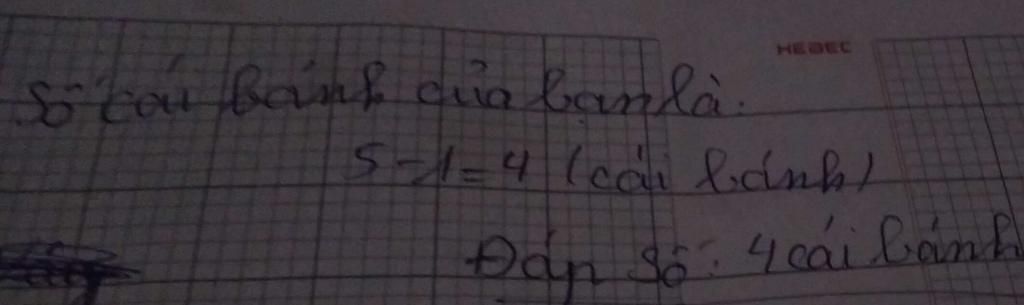 HEBEC
Số cái bánh của bạn là.
5 - 1 = 4 (cái bánh)
Đáp số: 4 cái bánh